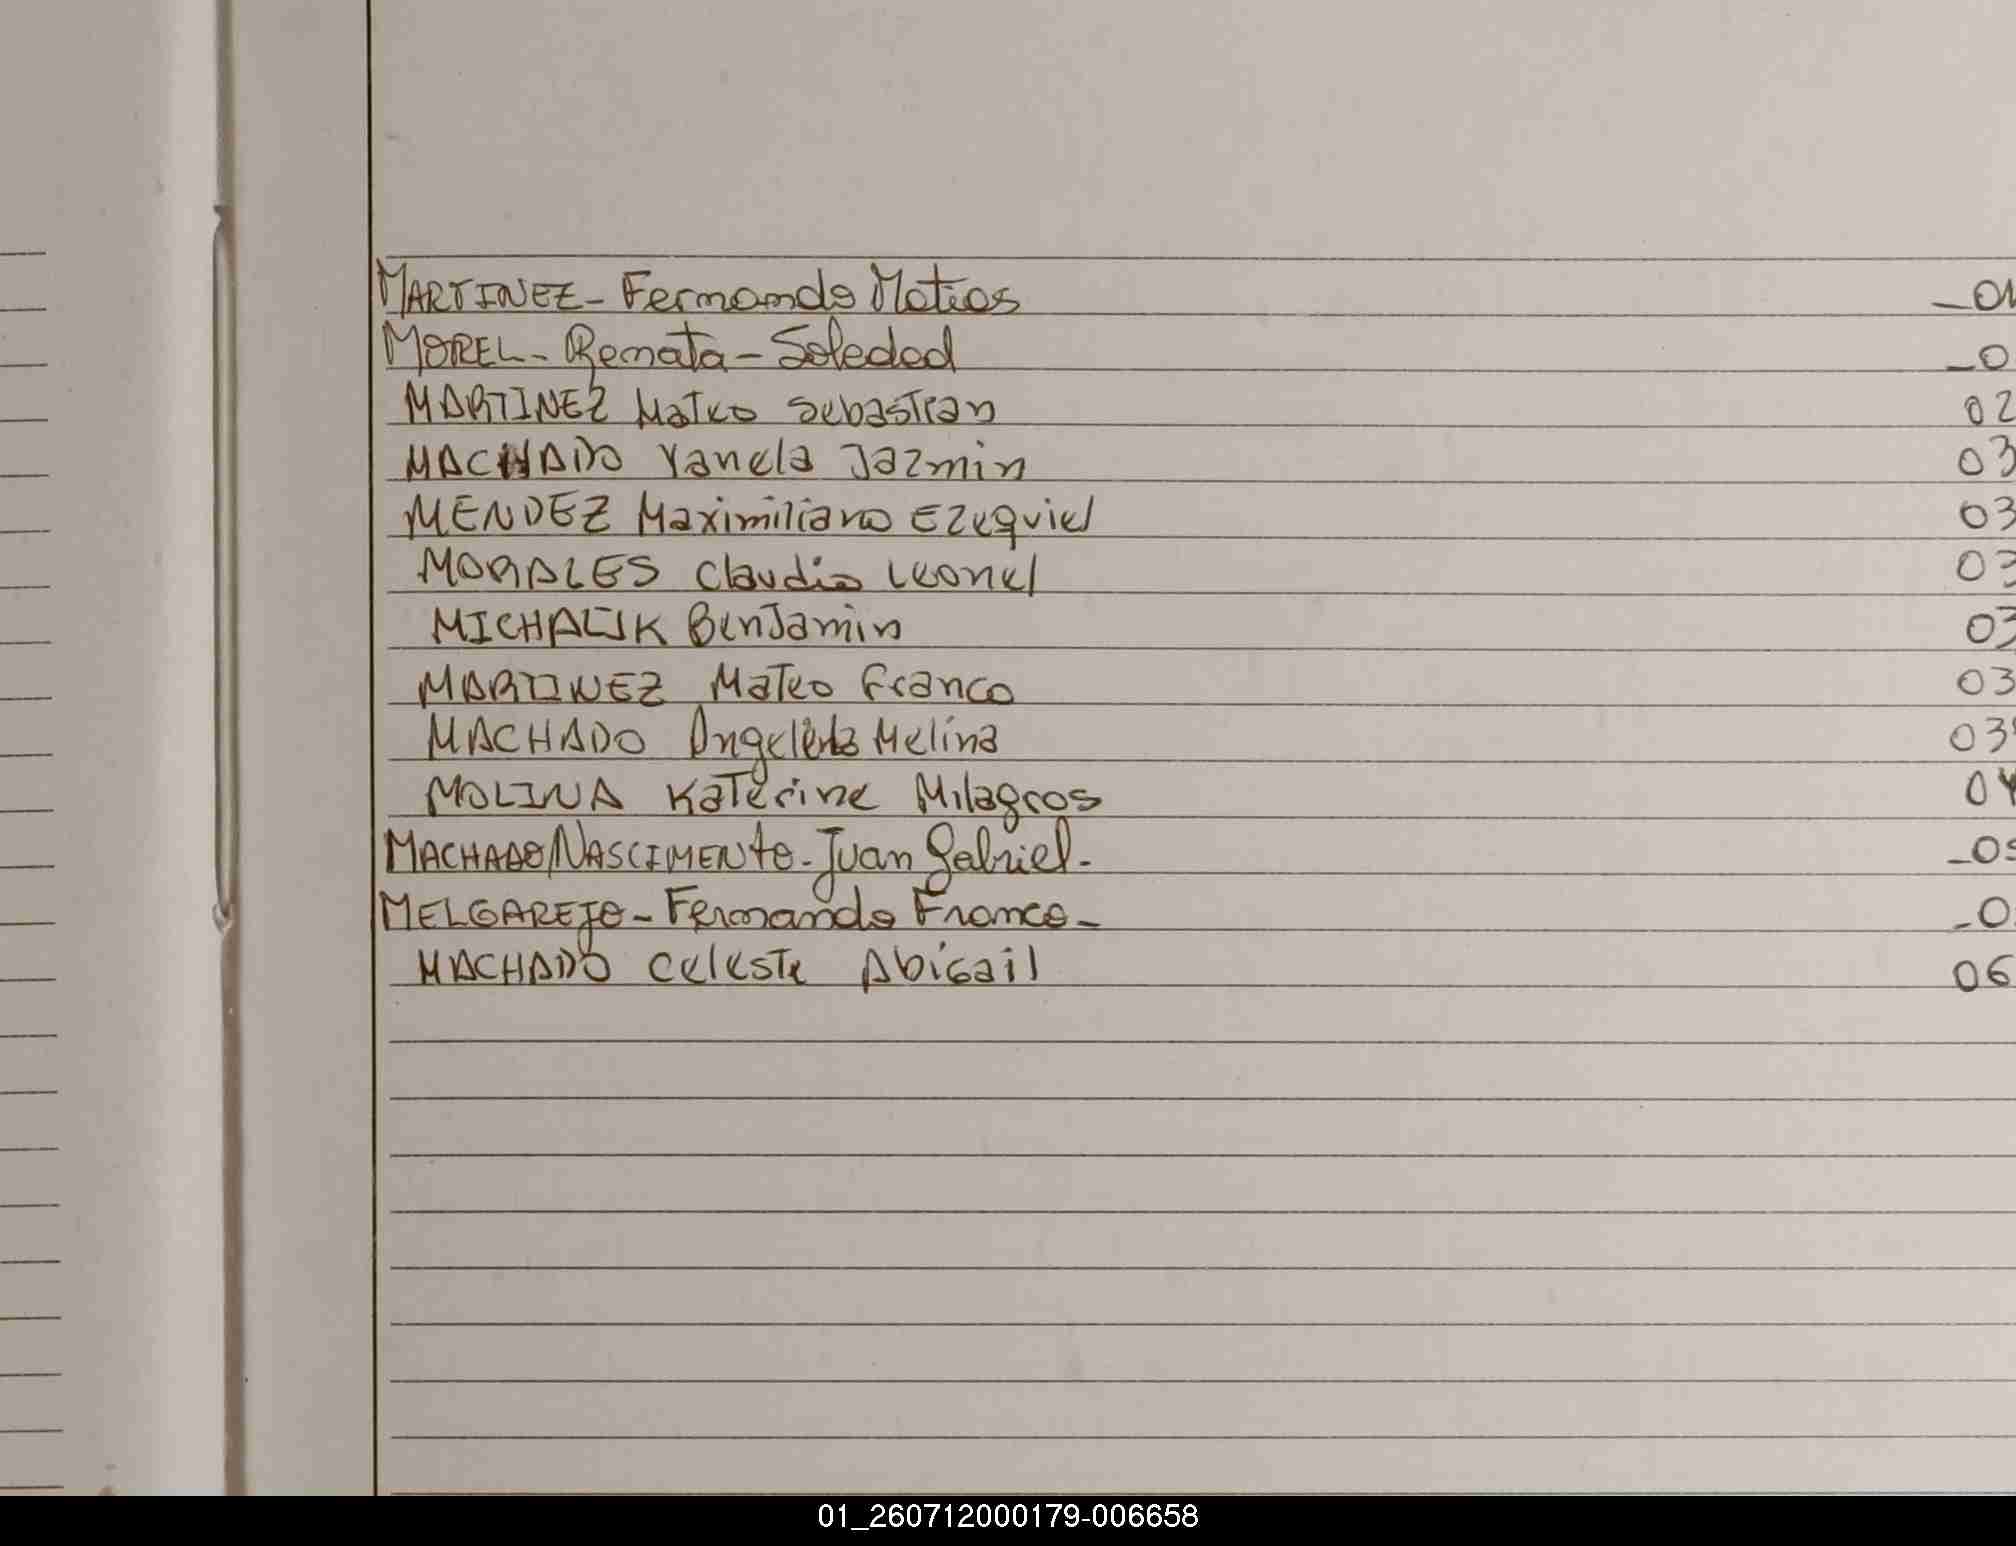 MARTINEZ - Fernando Matias _01
MOREL - Renata - Soledad _0
MARTINEZ Mateo Sebastian 02
MACHADO Yanela Jazmin 03
MENDEZ Maximiliano Ezequiel 03
MORALES Claudio Leonel 03
MICHALIK Benjamin 03
MARTINEZ Mateo Franco 03
MACHADO Melina 03
MOLINA Katerine Milagros 04
MACHADO NASCIMENTO - Juan Gabriel - _05
MELGAREJO - Fernando Franco - _0
MACHADO Celeste Abigail 06
01_260712000179-006658